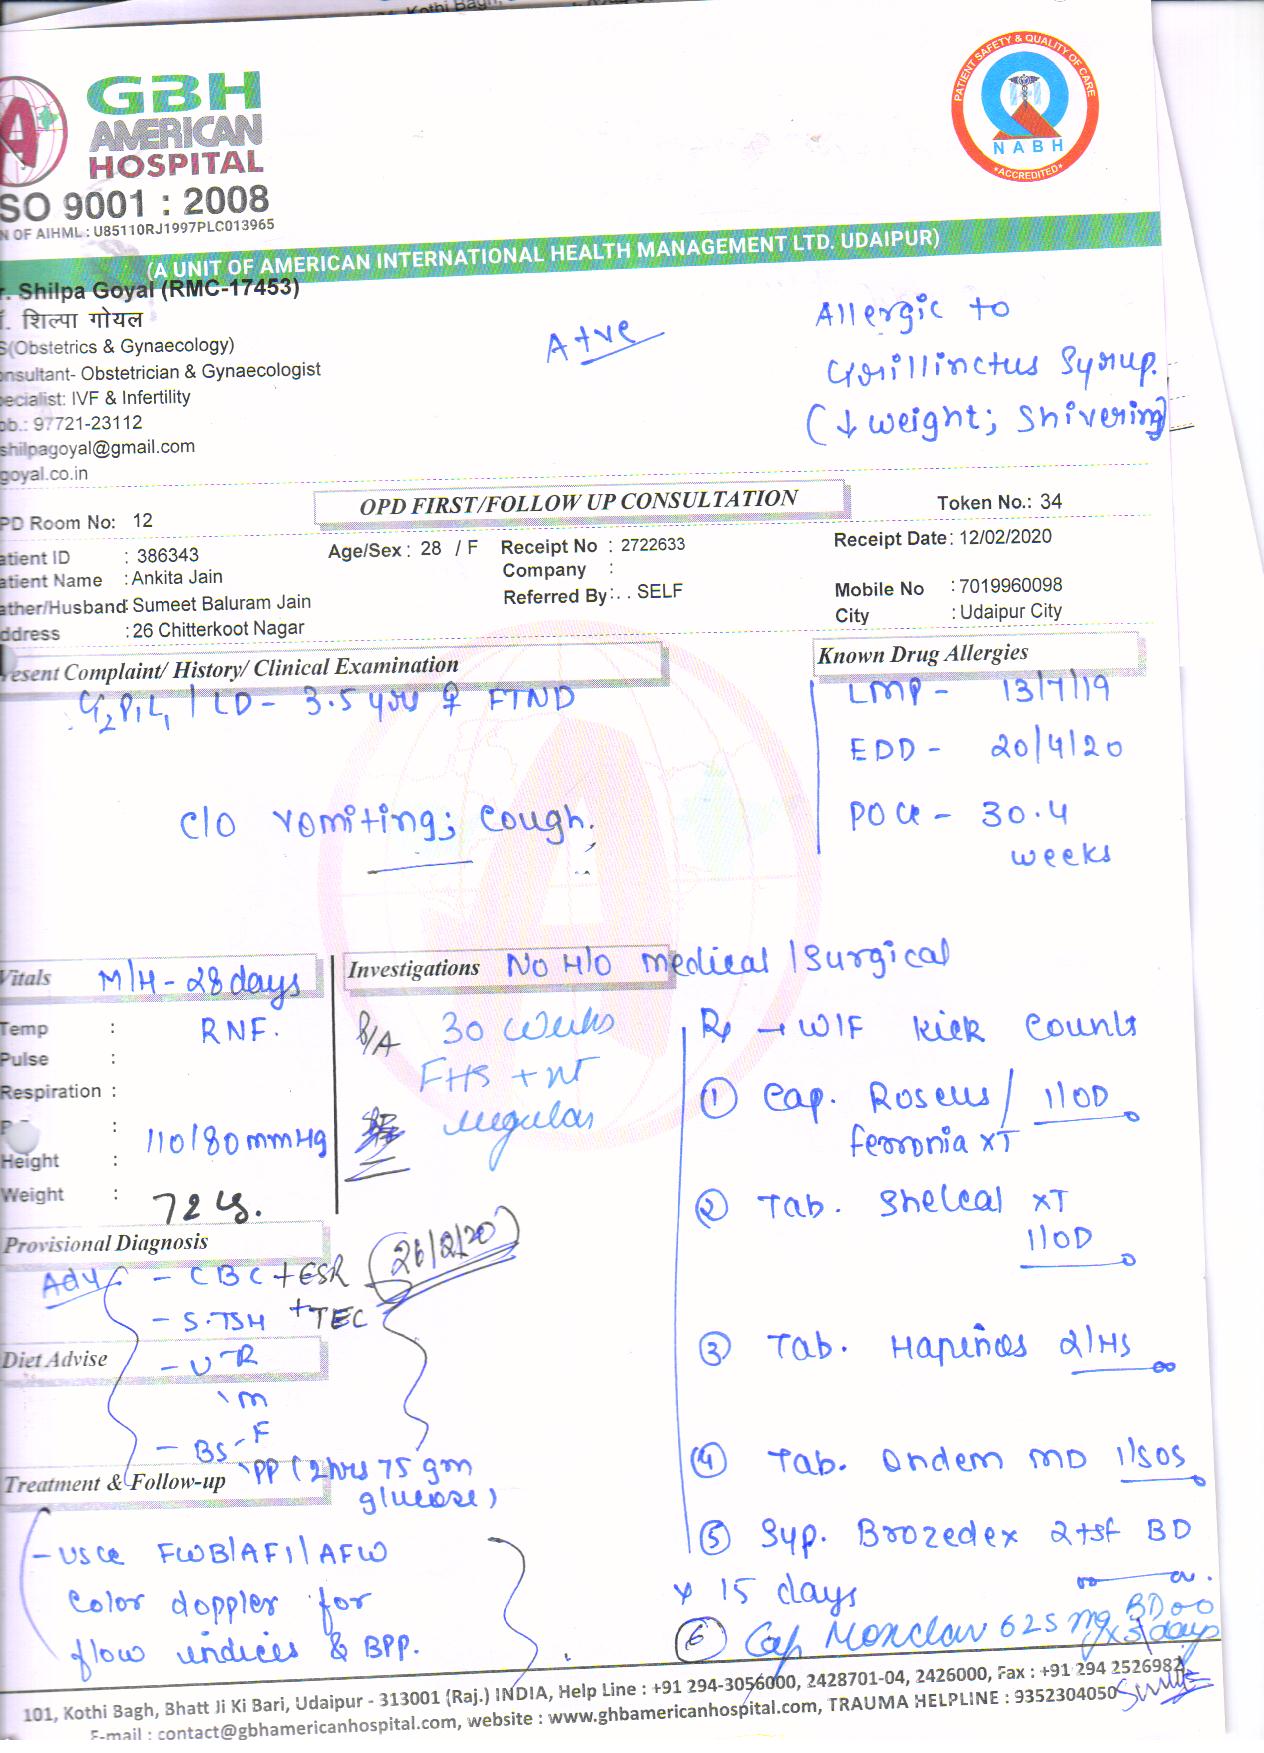 Kothi Bagh,
GBH
AMERICAN
HOSPITAL
SO 9001 : 2008
N OF AIHML : U85110RJ1997PLC013965
PATIENT SAFETY & QUALITY OF CARE
NABH
*ACCREDITED*
(A UNIT OF AMERICAN INTERNATIONAL HEALTH MANAGEMENT LTD. UDAIPUR)
r. Shilpa Goyal (RMC-17453)
. शिल्पा गोयल
S(Obstetrics & Gynaecology)
onsultant- Obstetrician & Gynaecologist
pecialist: IVF & Infertility
ob.: 97721-23112
shilpagoyal@gmail.com
goyal.co.in
A+ve
Allergic to
Grillinctus Syrup.
(↓ weight; Shivering)
OPD FIRST/FOLLOW UP CONSULTATION
Token No.: 34
PD Room No: 12
Receipt Date: 12/02/2020
atient ID : 386343
Age/Sex : 28 / F
Receipt No : 2722633
atient Name : Ankita Jain
Company :
Mobile No : 7019960098
ather/Husband: Sumeet Baluram Jain
Referred By : . . SELF
City : Udaipur City
ddress : 26 Chitterkoot Nagar
resent Complaint/ History/ Clinical Examination
Known Drug Allergies
G2P1L1 / LD - 3.5 yr ♀ FTND
LMP - 13/7/19
EDD - 20/4/20
POG - 30.4
weeks
c/o vomiting; cough.
Vitals
M/H - 28 days
RNF.
Investigations
No H/O medical / Surgical
Temp :
Pulse :
Respiration :
: 110/80 mmHg
Height :
Weight : 72
P/A 30 weeks
FHS +nt
regular
Rx → W/F Kick Counts
① Cap. Roseus / 1 OD
ferronia xT
② Tab. Shelcal xT
1 OD
③ Tab. Hapenos 2/HS
④ Tab. Ondem MD 1/SOS
⑤ Syp. Brozedex 2tsf BD
x 15 days
⑥ Cap Monclav 625 mg BD x 3 days
Provisional Diagnosis
Adv - CBC + ESR (26/2/20)
- S.TSH + TEC
Diet Advise
- U R
M
- BS F
PP (2 hrs 75 gm
glucose)
Treatment & Follow-up
- USG FWB/AFI/AFW
Color doppler for
flow indices & BPP.
101, Kothi Bagh, Bhatt Ji Ki Bari, Udaipur - 313001 (Raj.) INDIA, Help Line : +91 294-3056000, 2428701-04, 2426000, Fax : +91 294 2526982
E-mail : contact@gbhamericanhospital.com, website : www.ghbamericanhospital.com, TRAUMA HELPLINE : 9352304050